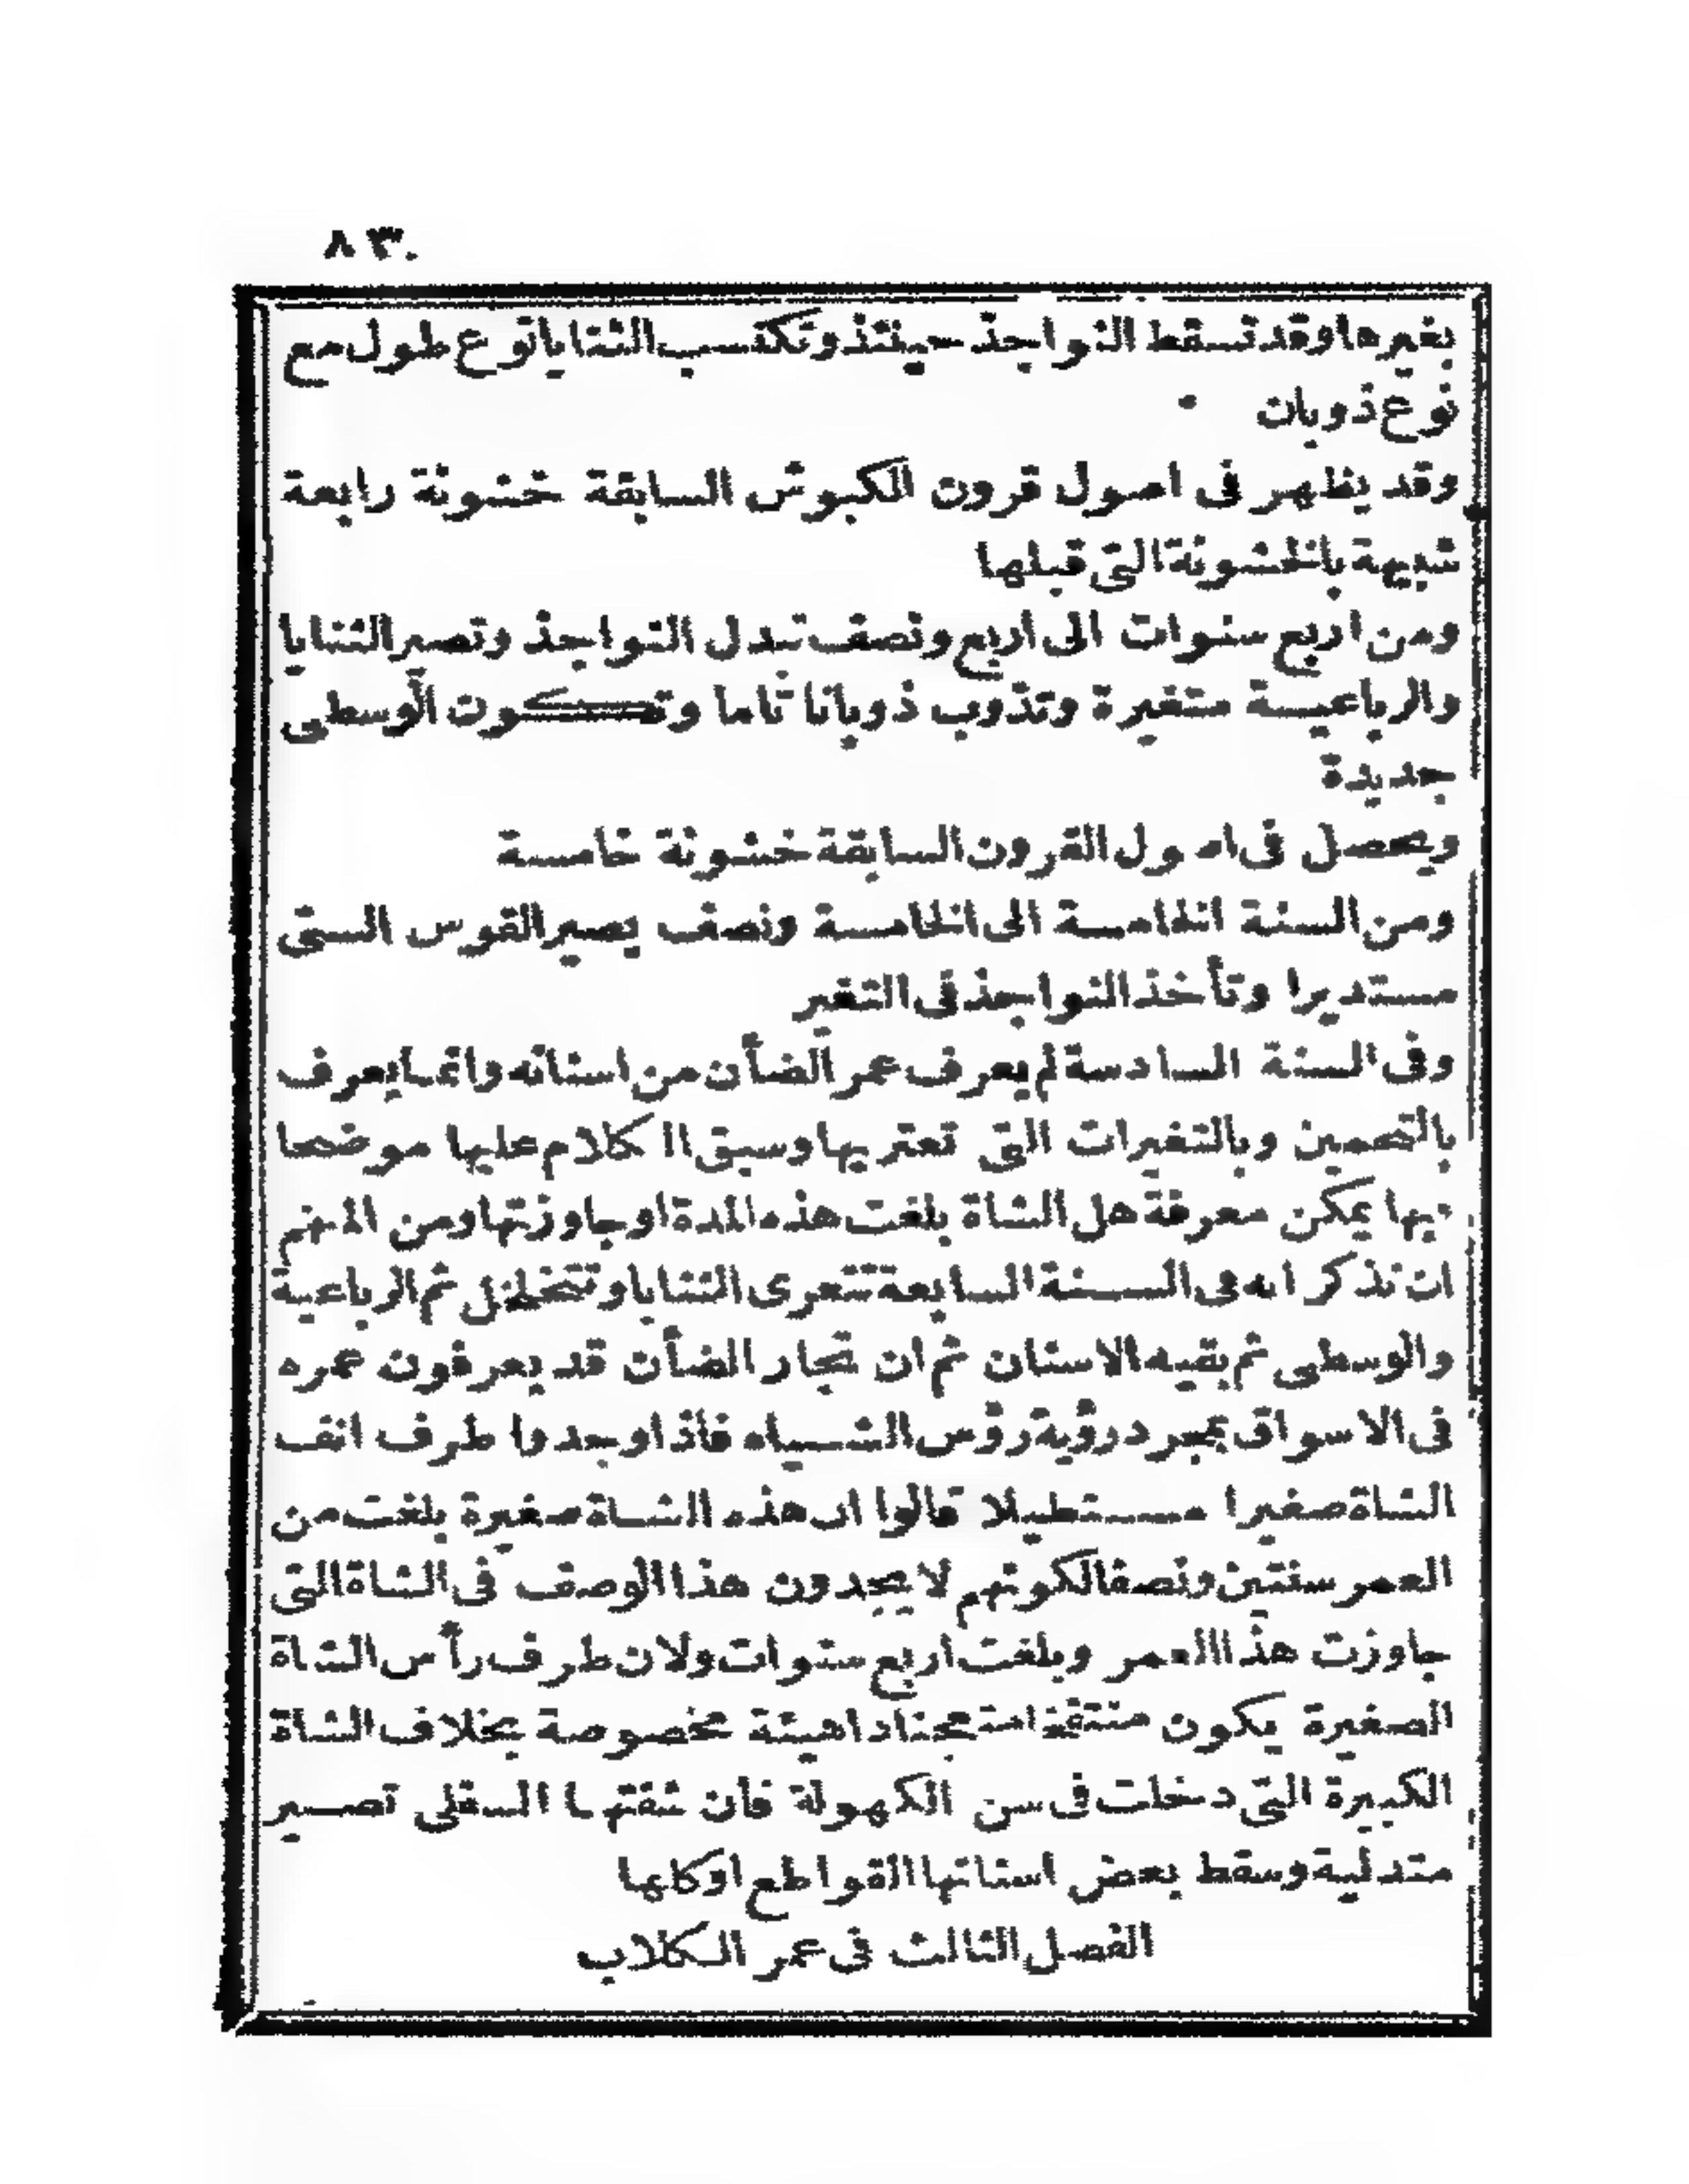 ٨٣
بغيرها وقد تسقط النواجذ حينئذ وتكتسب الثنايا نوع طول مع
نوع ذوبان
وقد يظهر فى اصول قرون الكبوش السابقة خشونة رابعة
شبيهة بالخشونة التى قبلها
ومن اربع سنوات الى اربع ونصف تبدل النواجذ وتصير الثنايا
والرباعيـة متغيرة وتذوب ذوبانا تاما وتكون الوسطى
جديدة
ويحصل فى اصول القرون السابقة خشونة خامسة
ومن السنة الخامسة الى الخامسة ونصف يصير القوس السنى
مستديرا وتأخذ النواجذ فى التغير
وفى السنة السادسة لم يعرف عمر الضأن من اسنانه وانما يعرف
بالتخمين وبالتغيرات التى تعتريها وسبق الكلام عليها موضحا
فبها يمكن معرفة هل الشاة بلغت هذه المدة او جاوزتها ومن المهم
ان نذكر انه فى السنة السابعة تتعرى الثنايا وتتخلخل ثم الرباعية
والوسطى ثم بقيه الاسنان ثم ان تجار الضأن قد يعرفون عمره
فى الاسواق بمجرد رؤية رؤس الشياه فاذا وجدوا طرف انف
الشاة صغيرا مستطيلا قالوا ان هذه الشاة صغيرة بلغت من
العمر سنتين ونصفا لكونهم لا يجدون هذا الوصف فى الشاة التى
جاوزت هذا العمر وبلغت اربع سنوات ولان طرف رأس الشاة
الصغيرة يكون منتفخا ستجناذا هيئة مخصوصة بخلاف الشاة
الكبيرة التى دخلت فى سن الكهولة فان شفتها السفلى تصير
متدلية وسقط بعض اسنانها القواطع او كلها
الفصل الثالث فى عمر الكلاب